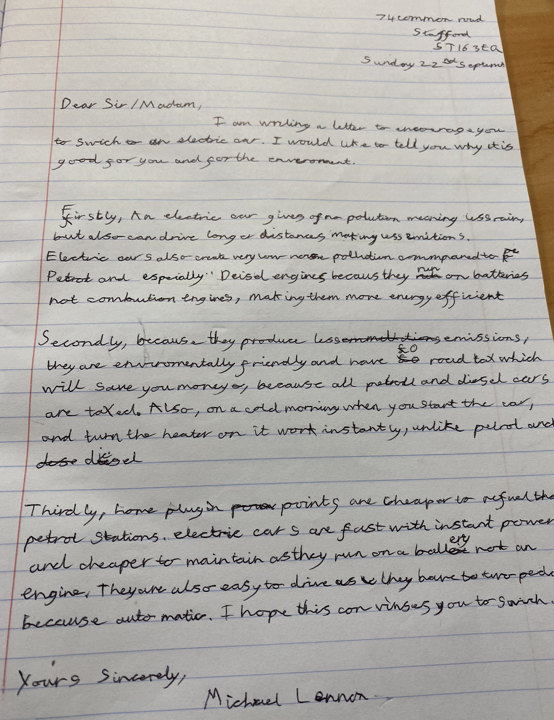 74 common road
Stafford
ST16 3EQ
Sunday 22nd September
Dear Sir/Madam,
I am writing a letter to encourage you
to swich to an electric car. I would like to tell you why it is
good for you and for the enveronment.
Firstly, An electric car gives of no polution meaning less rain,
but also can drive longer distances making less emitions.
Electric cars also create very low noise polludion commpared to
Petrol and espenially Deisol engines becaus they run on batterias
not combution engines, making them more energy efficient
Secondly, because they produce less emissions,
they are enviromentally friendly and have £0 road tax which
will save you money, because all petroll and diesel cars
are taxed. Also, on a cold morning when you start the car,
and turn the heater on it work instantly, unlike petrol and
diesel
Thirdly, home plug in points are cheaper to refuel tha
petrol stations. electric cars are fast with instant power
and cheaper to maintain as they run on a battery not an
engine. They are also easy to drive as they have to two peda
because auto matic. I hope this con vinses you to swich.
Yours Sincerely,
Michael Lennon